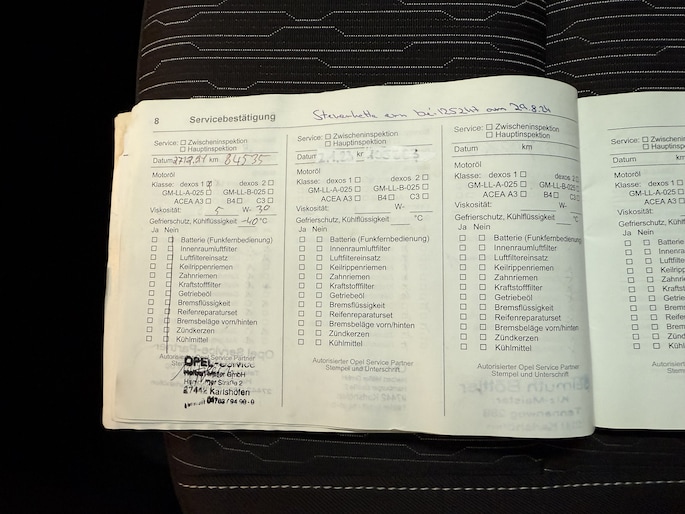 8 Servicebestätigung
Steuerkette ern bei 125247 am 29.8.24
Service: ☐ Zwischeninspektion
☐ Hauptinspektion
Datum km 84535
Motoröl
Klasse: dexos 1 dexos 2 ☐
GM-LL-A-025 ☐ GM-LL-B-025 ☐
ACEA A3 ☐ B4 ☐ C3 ☐
Viskosität: 5 W- 30
Gefrierschutz, Kühlflüssigkeit -40 °C
Ja Nein
☐ ☐ Batterie (Funkfernbedienung)
☐ ☐ Innenraumluftfilter
☐ ☐ Luftfiltereinsatz
☐ ☐ Keilrippenriemen
☐ ☐ Zahnriemen
☐ ☐ Kraftstofffilter
☐ ☐ Getriebeöl
☐ ☐ Bremsflüssigkeit
☐ ☐ Reifenreparaturset
☐ ☐ Bremsbeläge vorn/hinten
☐ ☐ Zündkerzen
☐ ☐ Kühlmittel
Autorisierter Opel Service Partner
OPEL-Service
GmbH
Straße 2
27442 Karlshöfen
Service: ☐ Zwischeninspektion
☐ Hauptinspektion
Datum km
Motoröl
Klasse: dexos 1 ☐ dexos 2 ☐
GM-LL-A-025 ☐ GM-LL-B-025 ☐
ACEA A3 ☐ B4 ☐ C3 ☐
Viskosität: W-
Gefrierschutz, Kühlflüssigkeit °C
Ja Nein
☐ ☐ Batterie (Funkfernbedienung)
☐ ☐ Innenraumluftfilter
☐ ☐ Luftfiltereinsatz
☐ ☐ Keilrippenriemen
☐ ☐ Zahnriemen
☐ ☐ Kraftstofffilter
☐ ☐ Getriebeöl
☐ ☐ Bremsflüssigkeit
☐ ☐ Reifenreparaturset
☐ ☐ Bremsbeläge vorn/hinten
☐ ☐ Zündkerzen
☐ ☐ Kühlmittel
Autorisierter Opel Service Partner
Stempel und Unterschrift
Service: ☐ Zwischeninspektion
☐ Hauptinspektion
Datum km
Motoröl
Klasse: dexos 1 ☐ dexos 2 ☐
GM-LL-A-025 ☐ GM-LL-B-025 ☐
ACEA A3 ☐ B4 ☐ C3 ☐
Viskosität: W-
Gefrierschutz, Kühlflüssigkeit °C
Ja Nein
☐ ☐ Batterie (Funkfernbedienung)
☐ ☐ Innenraumluftfilter
☐ ☐ Luftfiltereinsatz
☐ ☐ Keilrippenriemen
☐ ☐ Zahnriemen
☐ ☐ Kraftstofffilter
☐ ☐ Getriebeöl
☐ ☐ Bremsflüssigkeit
☐ ☐ Reifenreparaturset
☐ ☐ Bremsbeläge vorn/hinten
☐ ☐ Zündkerzen
☐ ☐ Kühlmittel
Autorisierter Opel Service Partner
Stempel und Unterschrift
Service: ☐ Zwischenins
☐ Hauptinspe
Datum
Motoröl
Klasse: dexos 1 ☐
GM-LL-A-025 ☐
ACEA A3 ☐
Viskosität:
Gefrierschutz, Kühlflüssig
Ja Nein
☐ ☐ Batterie (F
☐ ☐ Innenra
☐ ☐ Luftfilte
☐ ☐ Keilripp
☐ ☐ Zahnrie
☐ ☐ Kraftst
☐ ☐ Getrieb
☐ ☐ Bremsf
☐ ☐ Reifen
☐ ☐ Brems
☐ ☐ Zündke
☐ ☐ Kühl
Autorisierte
Stemp